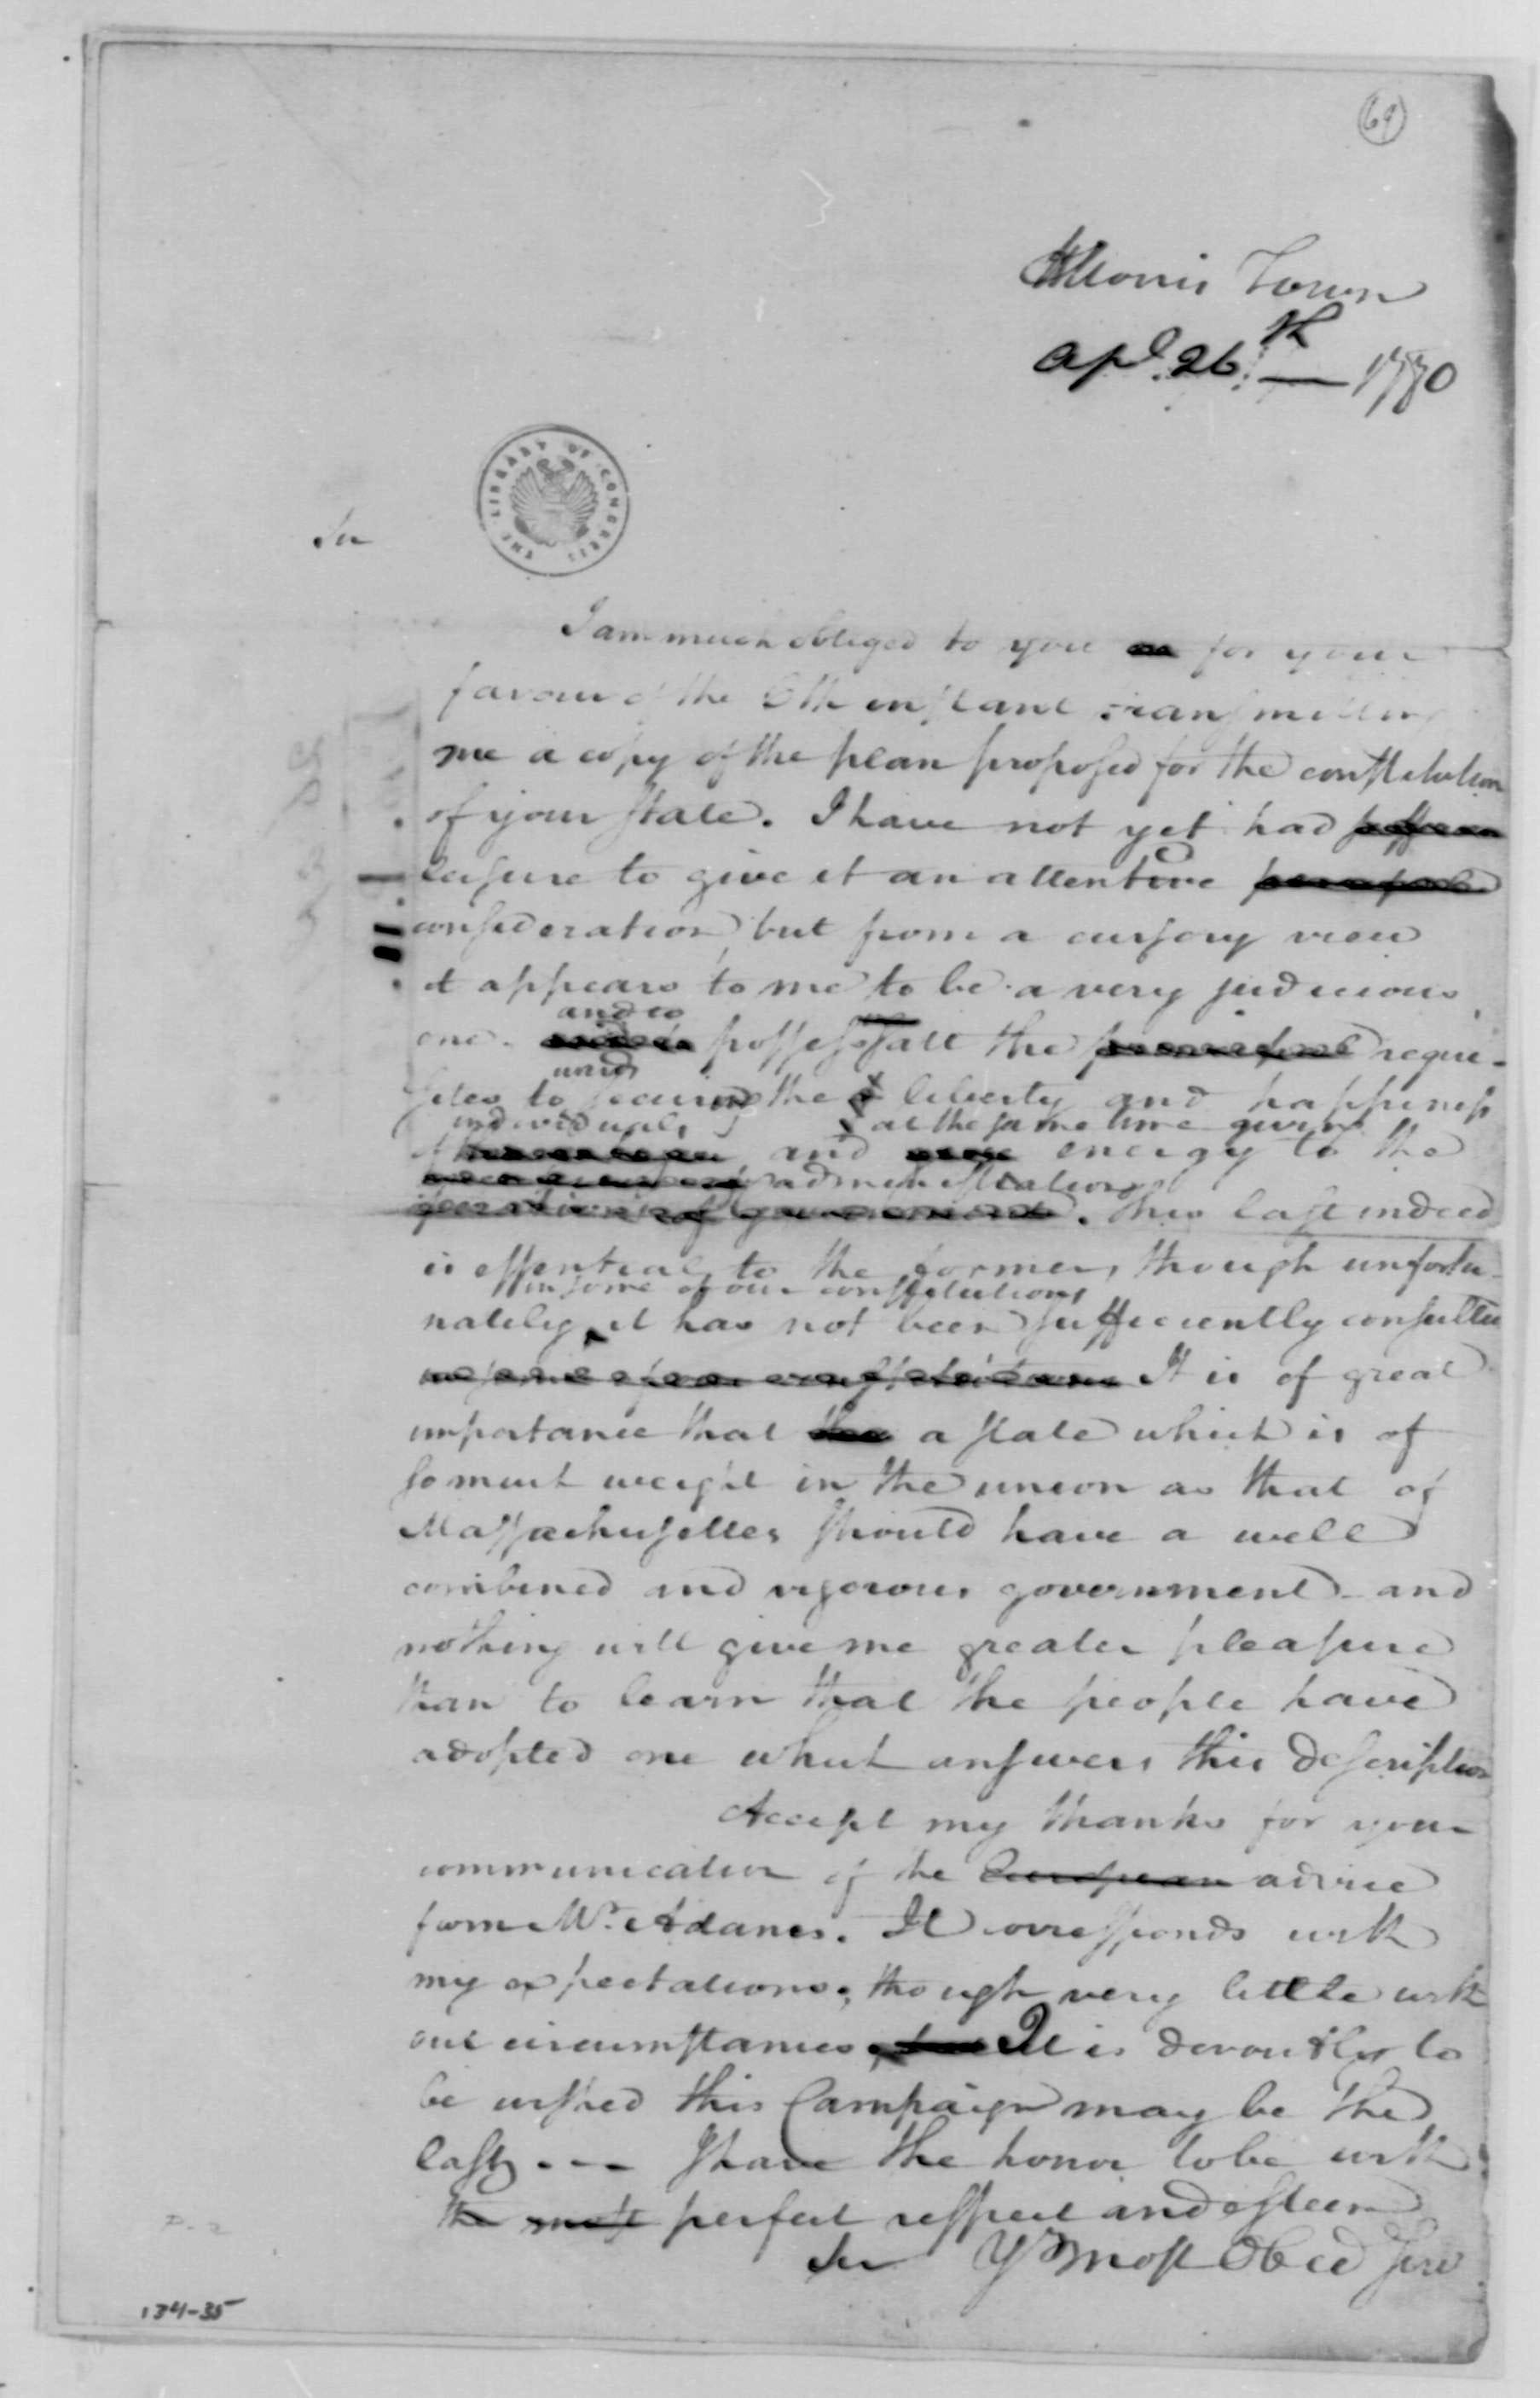 69
Morris Town
Apl. 26th — 1780
THE LIBRARY OF CONGRESS
Sir
I am much obliged to you for your
favour of the 6th instant transmitting
me a copy of the plan proposed for the constitution
of your state. I have not yet had
leisure to give it an attentive
consideration, but from a cursory view
it appears to me to be a very judicious
and to
one. possess all the requi-
wards
sites to securing the liberty and happiness
individuals at the same time giving
of and energy to the
administration
operations of government. this last indeed
is essential to the former, though unfortu-
in some of our constitutions
nately it has not been sufficiently consulted
in some of our constitutions It is of great
importance that the a state which is of
so much weight in the union as that of
Massachusettes should have a well
combined and vigorous government and
nothing will give me greater pleasure
than to learn that the people have
adopted one which answers this description
Accept my thanks for your
communication of the European advice
from Mr. Adams. It corresponds with
my expectations; though very little with
our circumstances. It is devoutly to
be wished this Campaign may be the
last. - - I have the honor to be with
the most perfect respect and esteem
Sir Yr Most Obed Serv
P-2
134-35